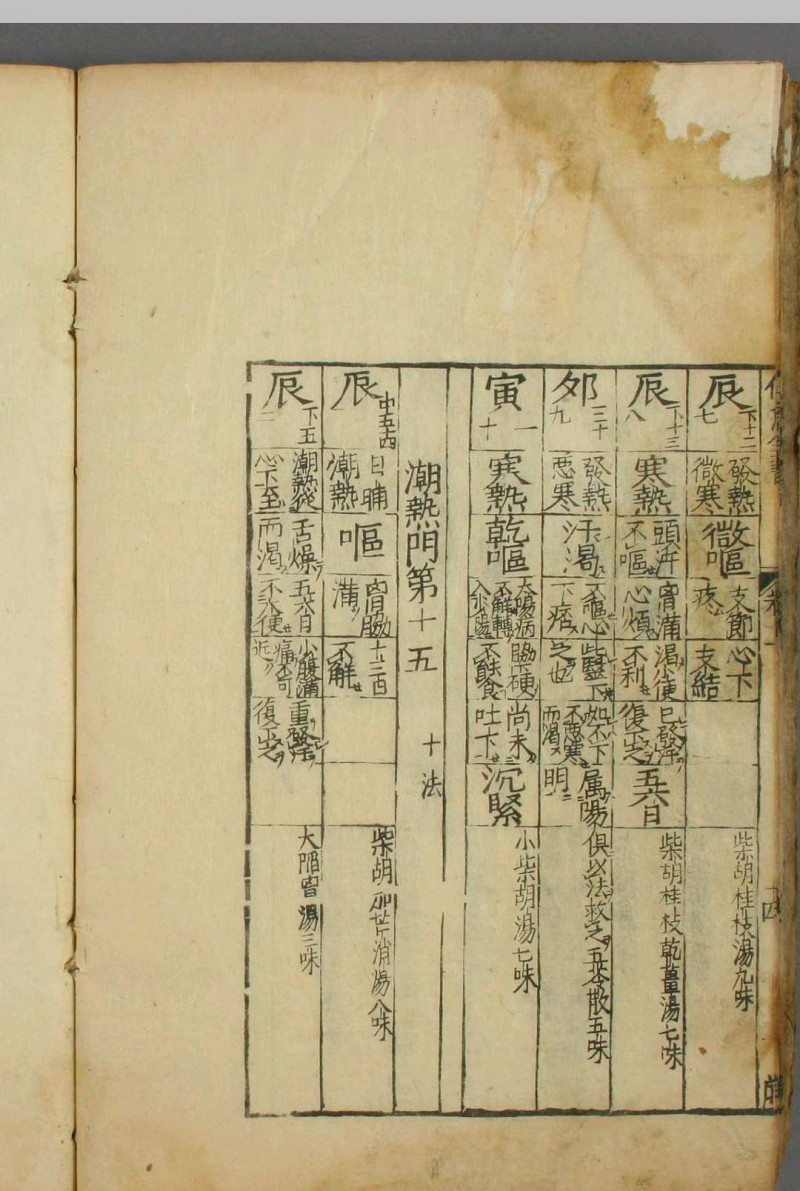 辰 七 下十二 發熱微寒 微嘔 支節疼 心下支結 柴胡桂枝湯九味
辰 八 下十三 寒熱 頭汗不嘔 胷滿心煩 渴小便不利 已發汗復下之 五六日 柴胡桂枝乾薑湯七味
夘 九 三十 發熱惡寒 汗渴 不嘔心下痞 此醫下之也 如不下不惡寒而渴 属陽明 俱以法救之五苓散五味
寅 十 一 寒熱 乾嘔 太陽病不解轉入少陽 脇下硬不能食 尚未吐下 沉緊 小柴胡湯七味
潮熱門第十五 十法
辰 中五十四 日晡潮熱 嘔 胷脇滿 十三日不解 柴胡加芒消湯八味
辰 二 下五 潮熱從心下至 舌燥而渴 五六日不大便 小腹滿痛不可近 重發汗復下之 大陷胷湯三味